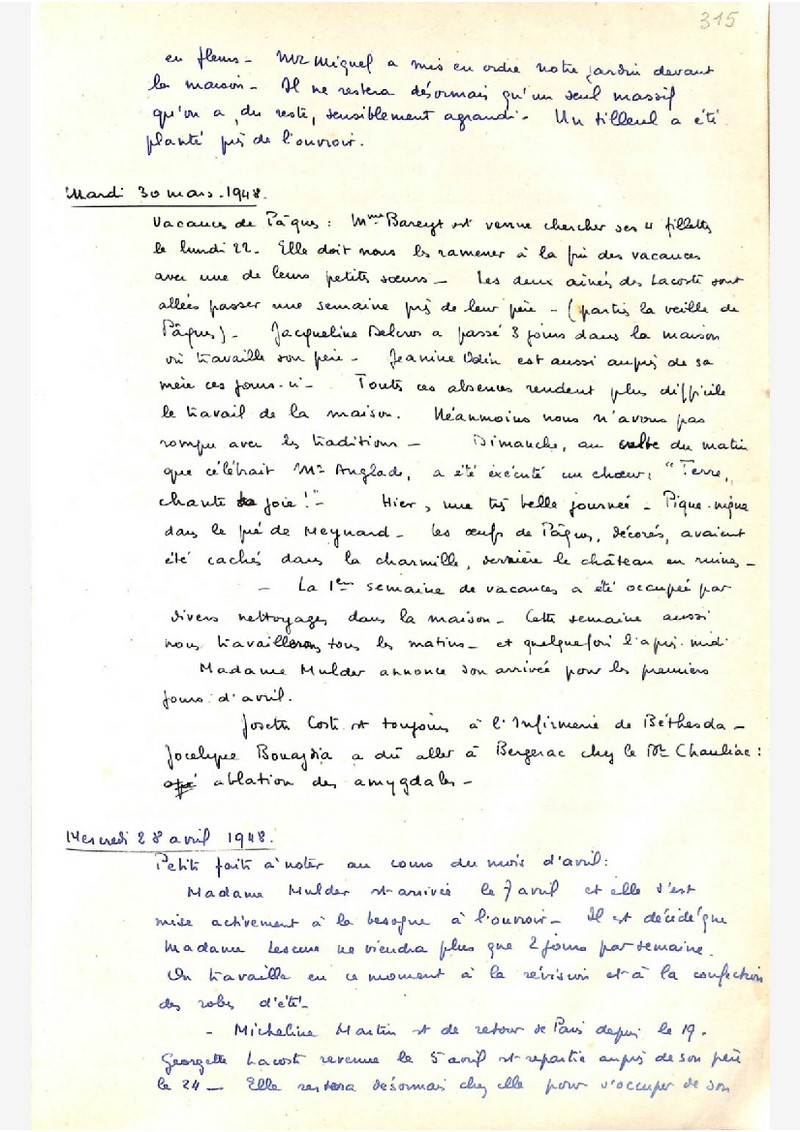 315
en fleurs - Mr Miguel a mis en ordre notre jardin devant
la maison - Il ne restera désormais qu'un seul massif
qu'on a, du reste, sensiblement agrandi - Un tilleul a été
planté près de l'ouvroir.
Mardi 30 mars. 1948.
Vacances de Pâques : Mme Bareyt est venue chercher ses 4 fillettes
le lundi 22. Elle doit nous les ramener à la fin des vacances
avec une de leurs petites sœurs - Les deux aînées des Lacoste sont
allées passer une semaine près de leur père - (parties la veille de
Pâques) - Jacqueline Delcros a passé 3 jours dans la maison
où travaille son père - Jeanine Odin est aussi auprès de sa
mère ces jours-ci - Toutes ces absences rendent plus difficile
le travail de la maison. Néanmoins nous n'avons pas
rompu avec les traditions - Dimanche, au culte du matin
que célébrait Mr Anglade, a été exécuté un chœur : "Terre,
chante de joie !" - Hier, une très belle journée - Pique-nique
dans le pré de Meynard - Les œufs de Pâques, décorés, avaient
été cachés dans la charmille, derrière le château en ruines -
- La 1ère semaine de vacances a été occupée par
divers nettoyages dans la maison - Cette semaine aussi
nous travaillerons tous les matins - et quelquefois l'après-midi
Madame Mulder annonce son arrivée pour les premiers
jours d'avril.
Josette Coste est toujours à l'Infirmerie de Béthesda -
Jocelyne a dû aller à Bergerac chez le Dr Chauliac :
ablation des amygdales -
Mercredi 28 avril 1948.
Petits faits à noter au cours du mois d'avril :
Madame Mulder est arrivée le 7 avril et elle s'est
mise activement à la besogne à l'ouvroir - Il est décidé que
Madame Lescure ne viendra plus que 2 jours par semaine.
On travaille en ce moment à la révision et à la confection
des robes d'été -
- Micheline Martin est de retour de Paris depuis le 19.
Georgette Lacoste revenue le 5 avril est repartie auprès de son père
le 24 - Elle restera désormais chez elle pour s'occuper de son